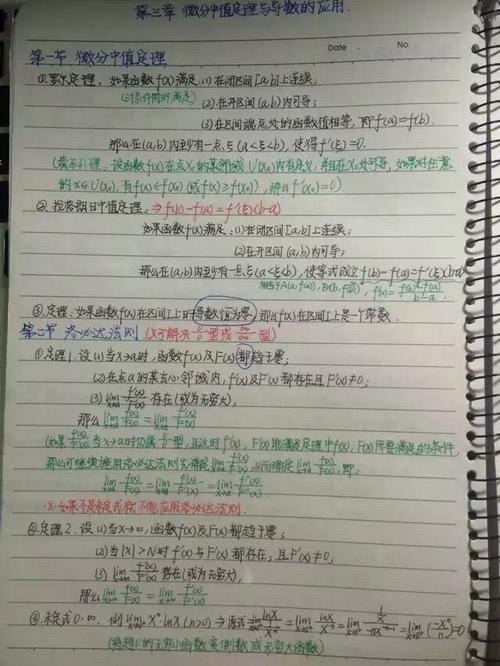 第三章 微分中值定理与导数的应用.
Date · No.
第一节 微分中值定理
①罗尔定理. 如果函数f(x)满足:(1)在闭区间[a,b]上连续;
(3条件同时满足) (2)在开区间(a,b)内可导;
(3)在区间端点处的函数值相等, 即f(a)=f(b).
那么在(a,b)内至少有一点ξ(a<ξ<b), 使得f'(ξ)=0.
(费马引理. 设函数f(x)在点x₀的某邻域U(x₀)内有定义, 并且在x₀处可导, 如果对任意
的x∈U(x₀), 有f(x)≤f(x₀) (或f(x)≥f(x₀)), 那么f'(x₀)=0)
②拉格朗日中值定理. ⇒f(b)-f(a)=f'(ξ)(b-a)
如果函数f(x)满足:(1)在闭区间[a,b]上连续;
(2)在开区间(a,b)内可导;
那么在(a,b)内至少有一点ξ(a<ξ<b), 使等式成立f(b)-f(a)=f'(ξ)(b-a)
A(a,f(a)), B(b,f(b)), f'(ξ)=\frac{f(b)-f(a)}{b-a}
③定理: 如果函数f(x)在区间I上的导数恒为零, 那么f(x)在区间I上是一个常数.
第二节 洛必达法则 (只可解决\frac{0}{0}型或\frac{∞}{∞}型)
①定理1. 设(1)当x→a时, 函数f(x)及F(x)都趋于零;
(2)在点a的某去心邻域内, f'(x)及F'(x)都存在且F'(x)≠0;
(3) \lim_{x→a}\frac{f'(x)}{F'(x)}存在(或为无穷大),
那么\lim_{x→a}\frac{f(x)}{F(x)}=\lim_{x→a}\frac{f'(x)}{F'(x)}
(如果\frac{f'(x)}{F'(x)}当x→a时仍属\frac{0}{0}型, 且这时f'(x), F'(x)能满足定理中f(x), F(x)所要满足的条件,
那么可继续施用洛必达法则先确定\lim_{x→a}\frac{f'(x)}{F'(x)}, 从而确定\lim_{x→a}\frac{f(x)}{F(x)}, 即:
\lim_{x→a}\frac{f(x)}{F(x)}=\lim_{x→a}\frac{f'(x)}{F'(x)}=\lim_{x→a}\frac{f''(x)}{F''(x)}
※如果不是未定式就不能应用洛必达法则.
②定理2. 设(1)当x→∞, 函数f(x)及F(x)都趋于零;
(2)当|x|>N时f'(x)与F'(x)都存在, 且F'(x)≠0;
(3) \lim_{x→∞}\frac{f'(x)}{F'(x)}存在(或为无穷大),
那么\lim_{x→∞}\frac{f(x)}{F(x)}=\lim_{x→∞}\frac{f'(x)}{F'(x)}
③未定式0·∞. 例\lim_{x→0⁺}xⁿlnx(n>0) ⇒原式=\lim_{x→0⁺}\frac{lnx}{x⁻ⁿ}=\lim_{x→0⁺}\frac{lnx}{x⁻ⁿ}=\lim_{x→0⁺}\frac{\frac{1}{x}}{-nx⁻ⁿ⁻¹}=\lim_{x→0⁺}(\frac{-xⁿ}{n})=0
(将趋0的无穷小函数变倒数成无穷大函数)